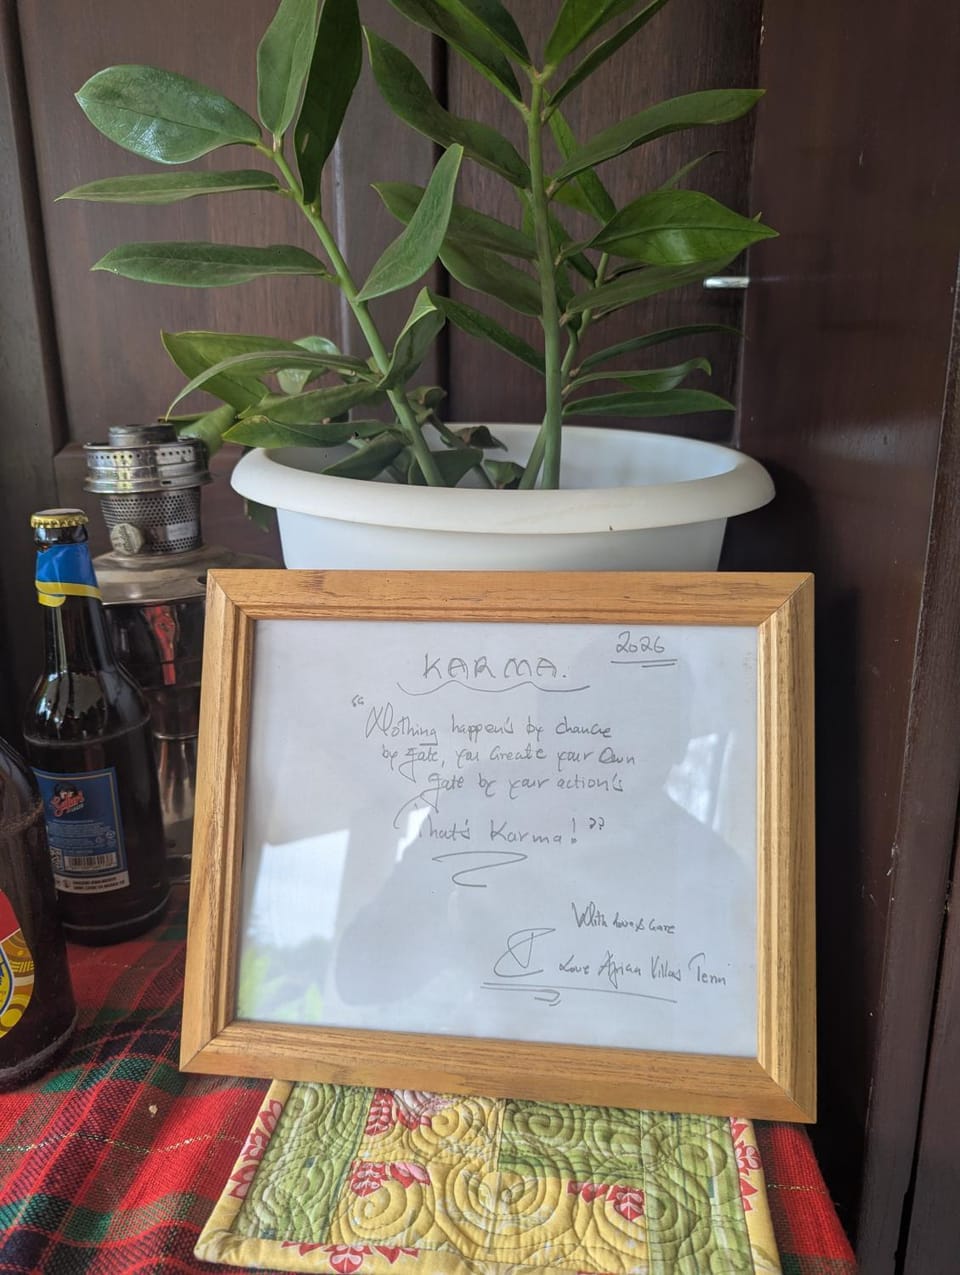 2026
KARMA.
"Nothing happen's by chance
by fate, you create your own
fate by your action's
That's Karma!"
With love & Care
Love African Villas Team